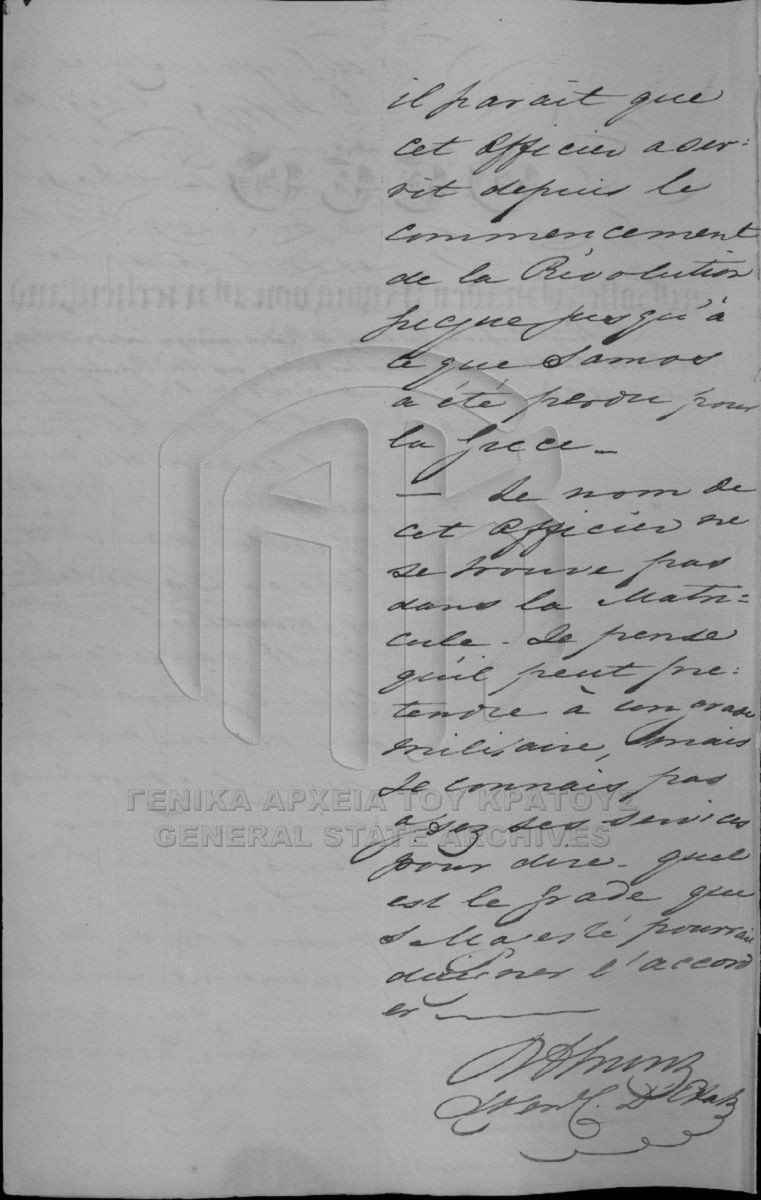 il parait que
cet Officier a ser:
vit depuis le
commencement
de la Révolution
jusqu'à
ce que Samos
a été perdu pour
la Grece _
— Le nom de
cet Officier ne
se trouve pas
dans la Matri-
cule - Je pense
qu'il peut pre:
tendre à un grade
militaire, mais
je connais pas
assez ses services
pour dire - quel
est le grade que
S Majesté pourrai
l'accord
er
ΓΕΝΙΚΑ ΑΡΧΕΙΑ ΤΟΥ ΚΡΑΤΟΥΣ
GENERAL STATE ARCHIVES